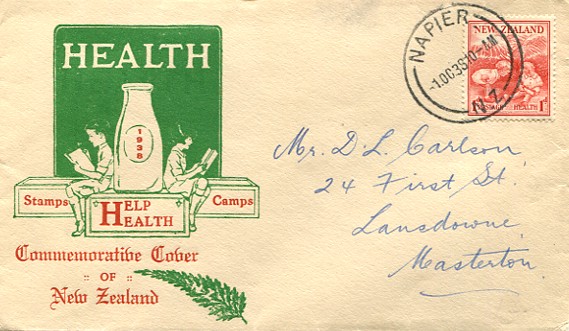 HEALTH
1938
Stamps
HELP
HEALTH
Camps
Commemorative Cover
:: OF ::
New Zealand
NAPIER
N.Z.
NEW ZEALAND
HEALTH 1D
Mr. D. L. Carlson
24 First St.
Lansdowne,
Masterton.